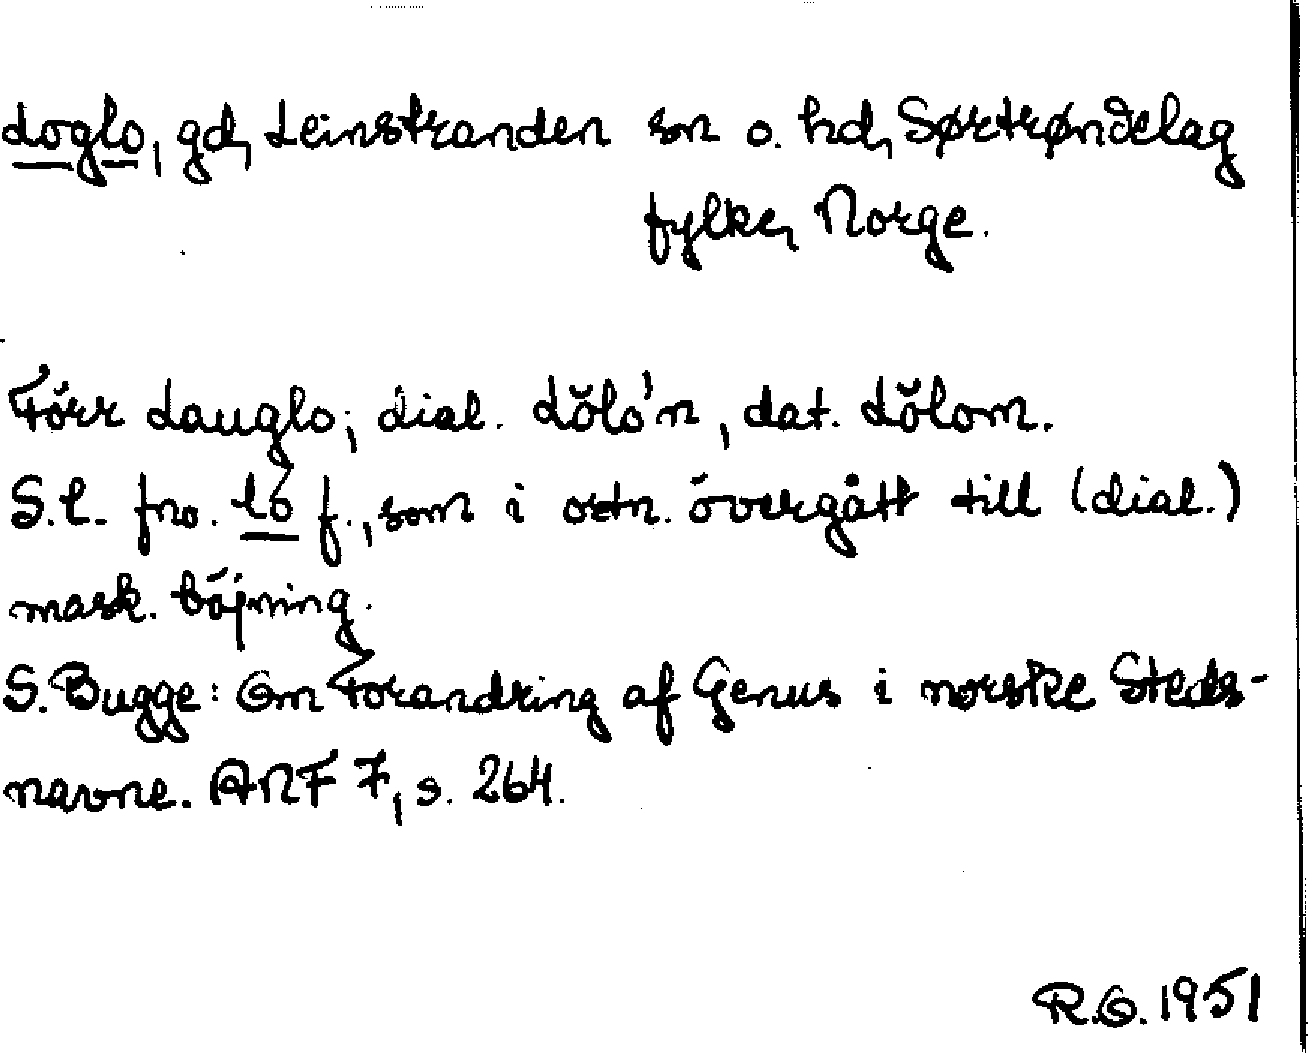 Loglo, gd, Leinstranden sn o. hd, Sørtrøndelag
fylke, Norge.
Förr Lauglo; dial. Lŏlo'n, dat. Lŏlom.
S.l. fno. ló f., som i ortn. övergått till (dial.)
mask. böjning.
S. Bugge: Om Forandring af Genus i norske Steds-
navne. ANF 7, s. 264.
R.O. 1951